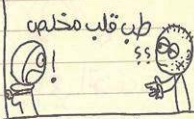 طب قلب مخلص
؟؟
!